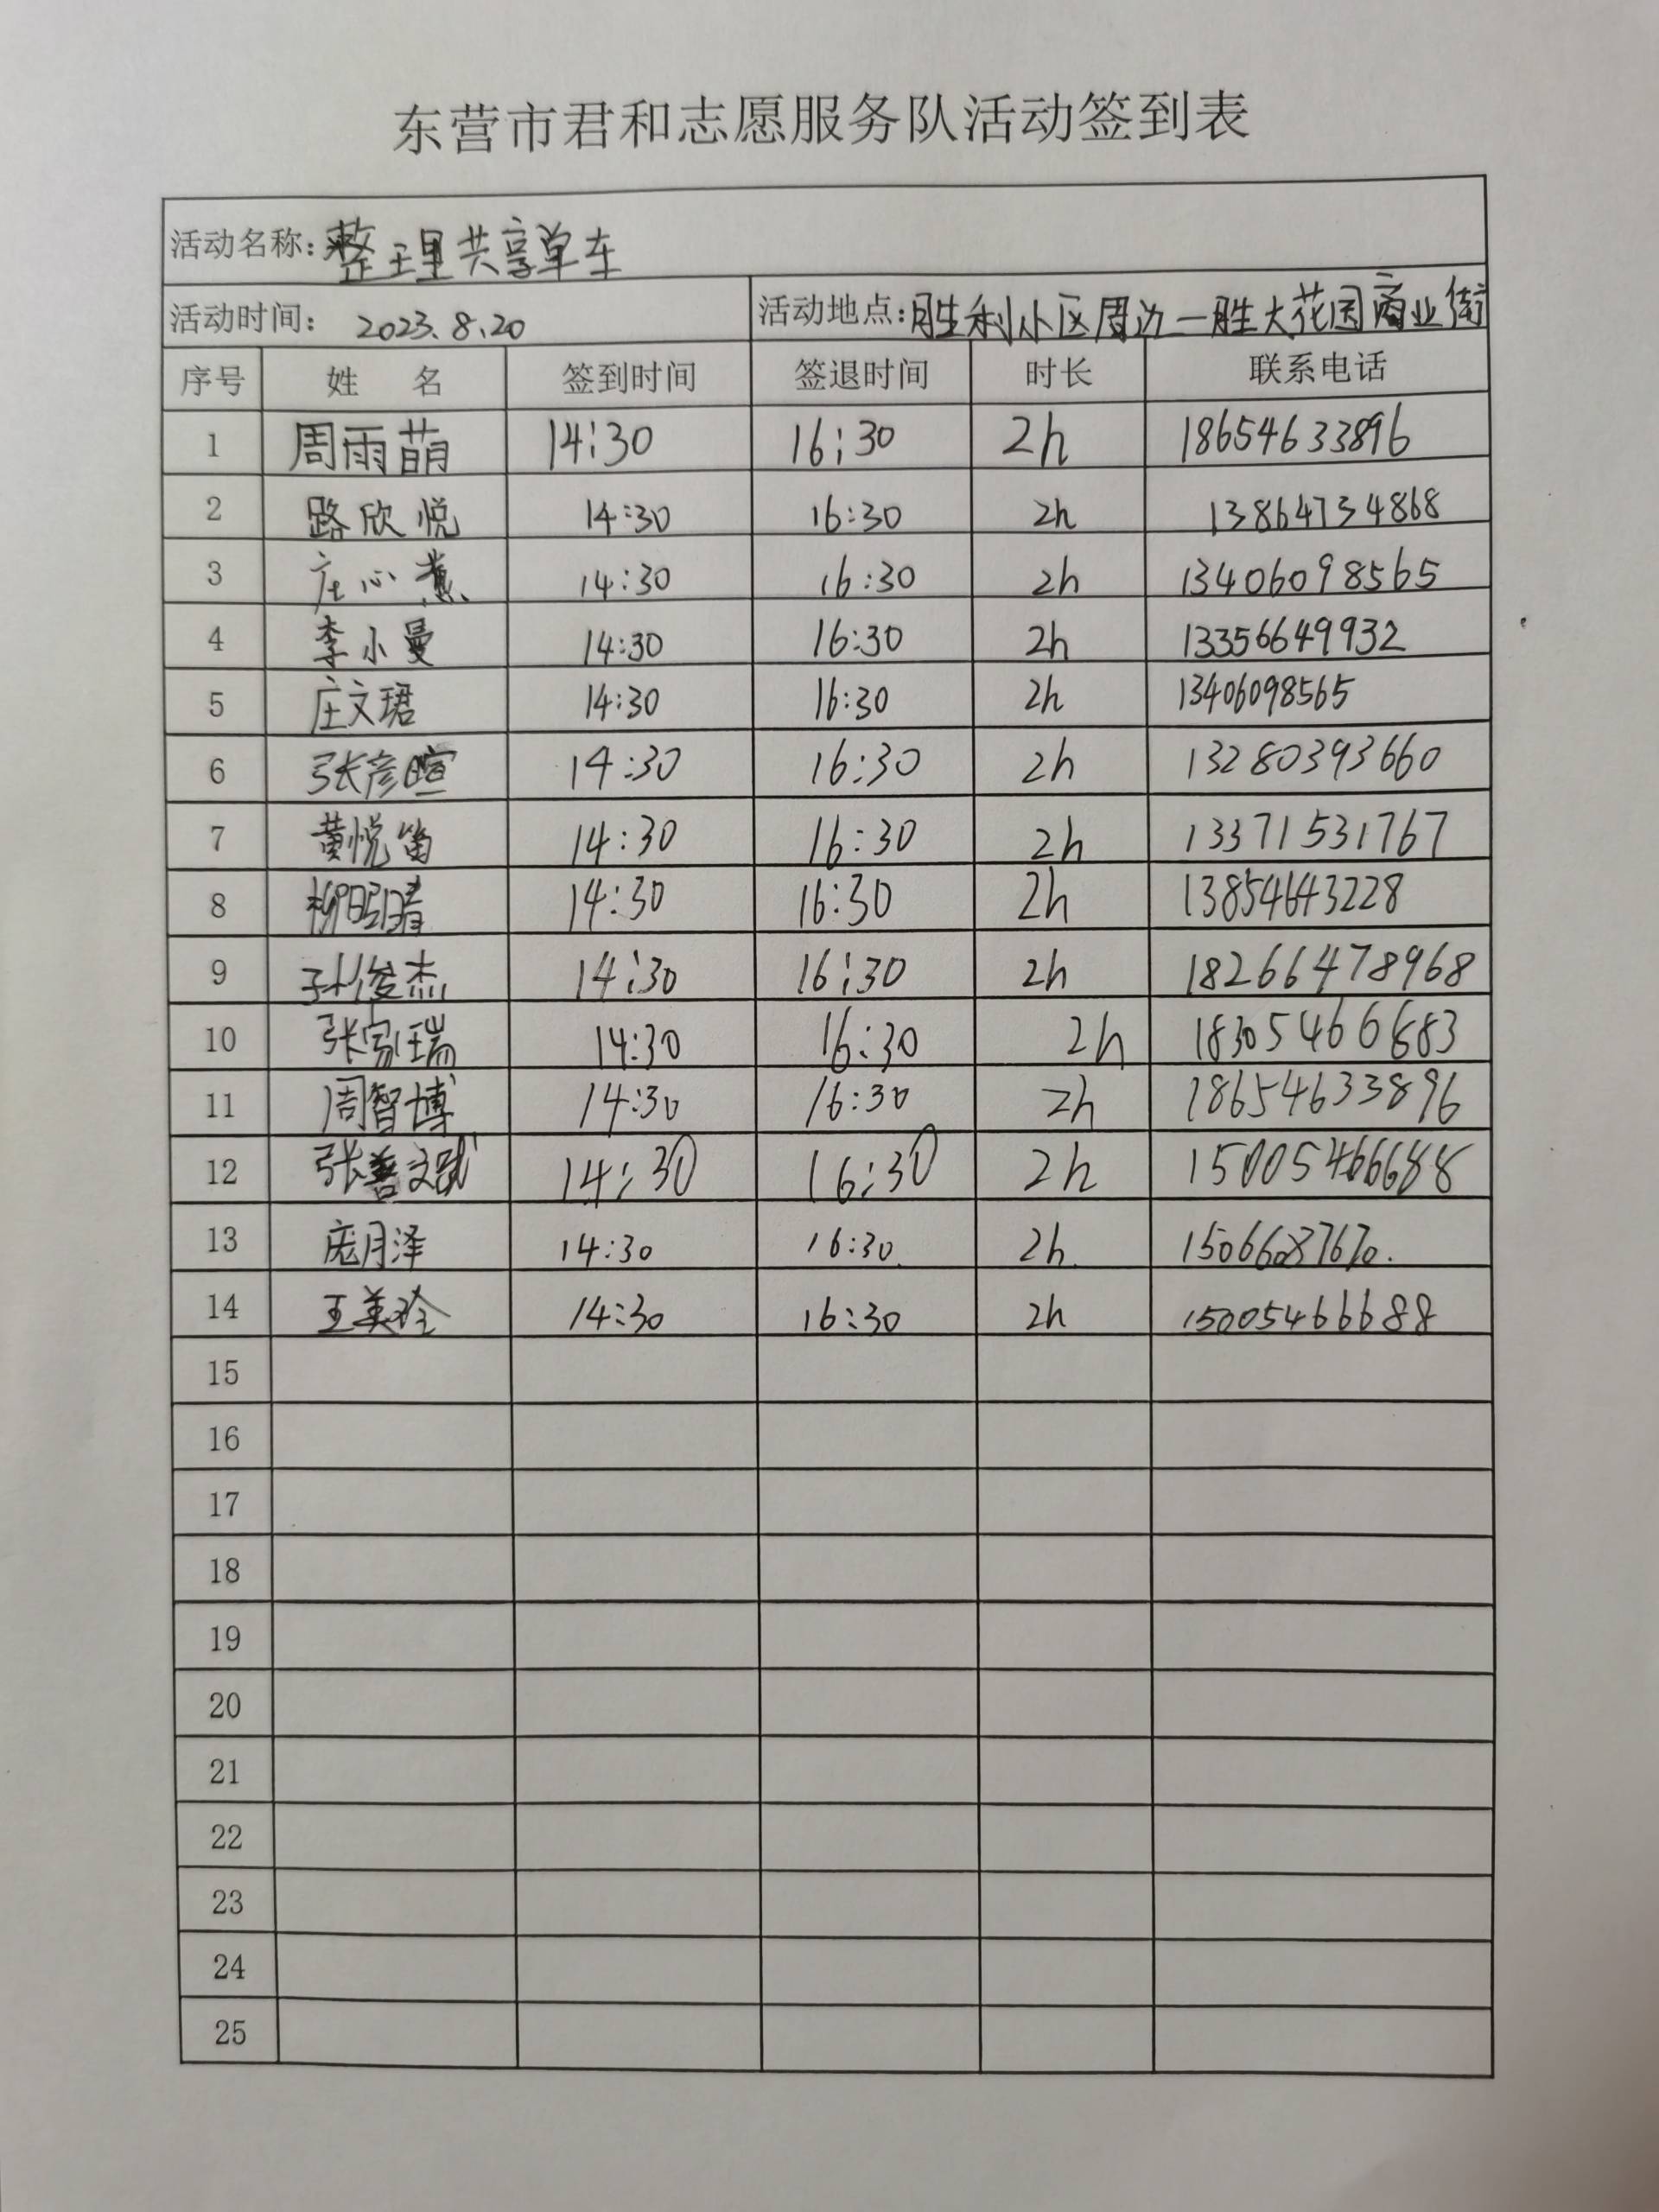 东营市君和志愿服务队活动签到表
活动名称：整理共享单车
活动时间： 2023.8.20 活动地点：胜利小区周边—胜大花园商业街
序号 姓 名 签到时间 签退时间 时长 联系电话
1 周雨萌 14:30 16:30 2h 18654633896
2 路欣悦 14:30 16:30 2h 13864734868
3 庄心 14:30 16:30 2h 13406098565
4 李小曼 14:30 16:30 2h 13356649932
5 庄文珺 14:30 16:30 2h 13406098565
6 张彦暄 14:30 16:30 2h 13280393660
7 黄悦笛 14:30 16:30 2h 13371531767
8 柳 晴 14:30 16:30 2h 13854643228
9 孙俊杰 14:30 16:30 2h 18266478968
10 张家瑞 14:30 16:30 2h 18305466683
11 周智博 14:30 16:30 2h 18654633896
12 张善斌 14:30 16:30 2h 15005466688
13 庞月泽 14:30 16:30 2h
14 王美玲 14:30 16:30 2h 15005466688
15
16
17
18
19
20
21
22
23
24
25